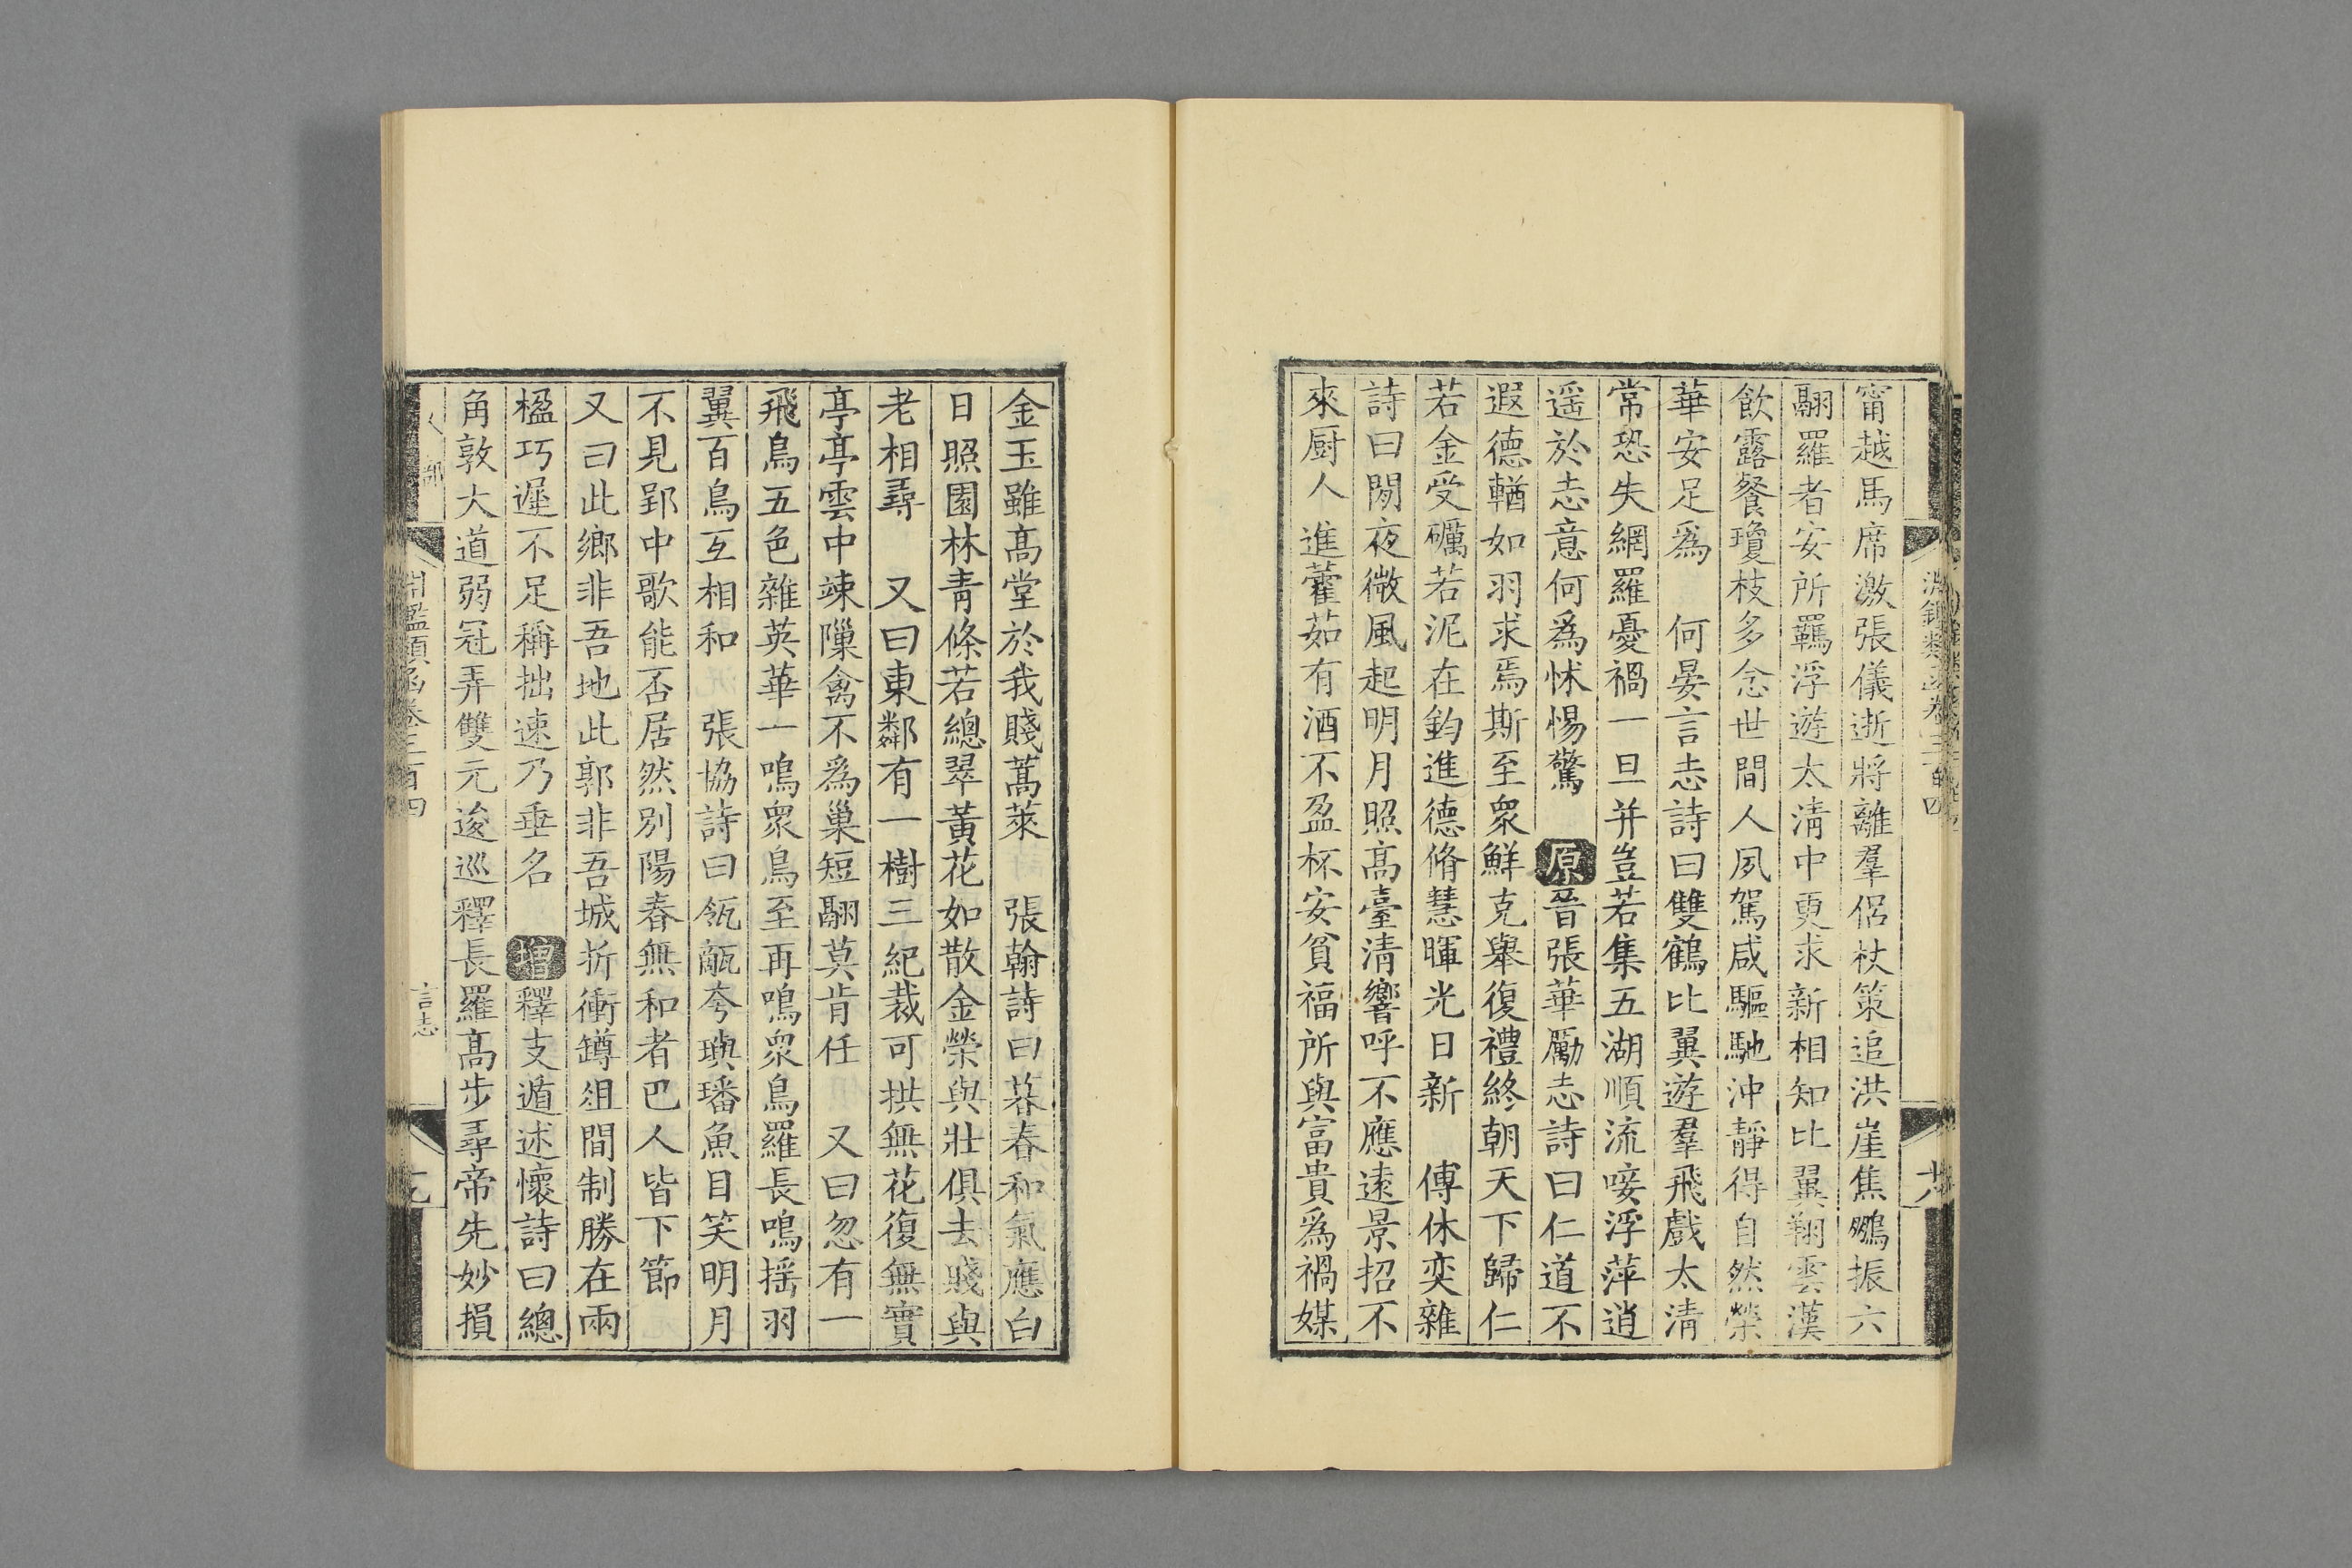 甯越馬席激張儀逝將離羣侶杖策追洪崖焦鵬振六
翮羅者安所羈浮遊太淸中更求新相知比翼翔雲漢
飮露餐瓊枝多念世間人夙駕咸驅馳沖靜得自然榮
華安足爲　何晏言志詩曰雙鶴比翼遊羣飛戲太淸
常恐失網羅憂禍一旦并豈若集五湖順流唼浮萍逍
遥於志意何爲怵惕驚　原晉張華勵志詩曰仁道不
遐德輶如羽求焉斯至衆鮮克舉復禮終朝天下歸仁
若金受礪若泥在鈞進德脩慧暉光日新　傅休奕雜
詩曰閒夜微風起明月照高臺淸響呼不應遠景招不
來厨人進藿茹有酒不盈杯安貧福所與富貴爲禍媒
金玉雖高堂於我賤蒿萊　張翰詩曰暮春和氣應白
日照園林靑條若總翠黃花如散金榮與壯俱去賤與
老相尋　又曰東鄰有一樹三紀裁可拱無花復無實
亭亭雲中竦隟禽不爲巢短翮莫肯任　又曰忽有一
飛鳥五色雜英華一鳴衆鳥至再鳴衆鳥羅長鳴揺羽
翼百鳥互相和　張協詩曰瓴甋夸璵璠魚目笑明月
不見郢中歌能否居然别陽春無和者巴人皆下節
又曰此鄉非吾地此郭非吾城折衝罇俎間制勝在兩
楹巧遲不足稱拙速乃垂名　增釋支遁述懷詩曰總
角敦大道弱冠弄雙元逡巡釋長羅高步尋帝先妙損
人部
淵鑑類函卷三百四
言志